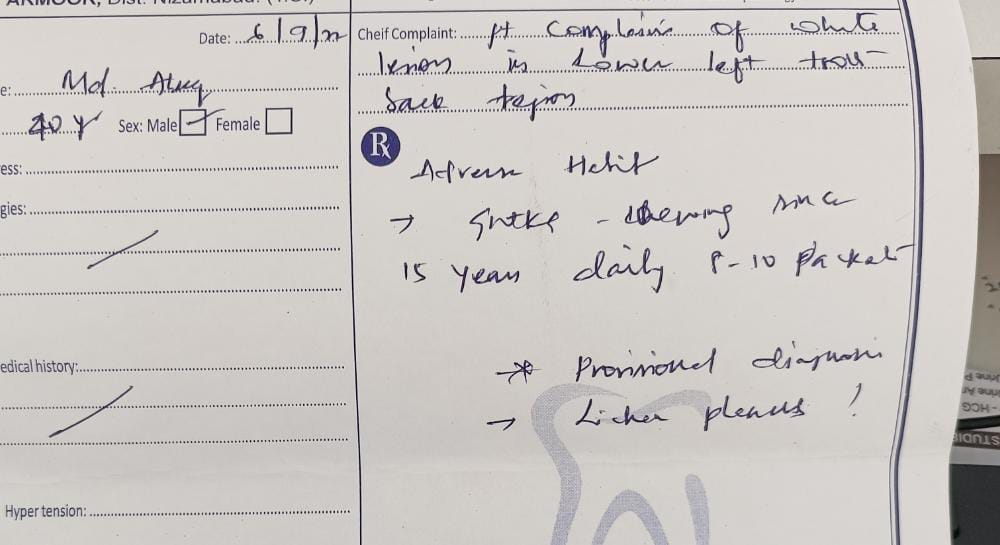 ARMOOR, Dist. Nizamabad.
Date: 6/9/22
e: Md. Ateeq
40 Y Sex: Male Female
ess:
gies:
edical history:
Hyper tension:
Cheif Complaint: Pt Complains of white
lesion in lower left
region
Rx
Adverse Habit
→ Gutka - chewing since
15 years daily 8-10 Packet
* Provisional diagnosis
→ Lichen planus !
-HCG